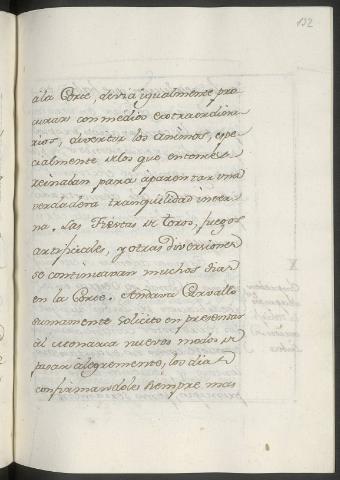 132
à la Corte, devia igualmente pro
curar con medios extraordina
rios, divertir los animos, espe
cialmente de los que entonces
reinaban para aparentar una
verdadera tranquilidad inter
na. Las Fiestas de toros, fuegos
artificiales, y otras diversiones
se continuaran muchos dias
en la Corte. Andava Carvallo
sumamente solicito en presentar
al Monarca nuevos modos de
pasar alegremente, los dias
confirmandoles siempre mas